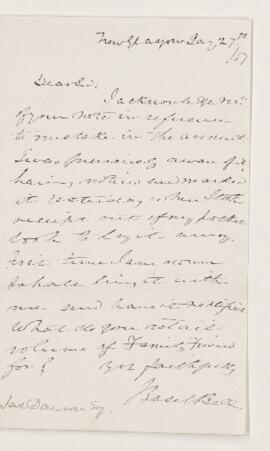 New Glasgow Jany 27th
/57
Dear Sir,
I acknowledge rect
of your note in reference
to mistake in the account
I was previously aware of it
having noticed and marked
it yesterday when I took
receipt out of my pocket
book to lay it away.
Next time I am down
I shall bring it with
me and have it rectified
What do you retail
volume of Family Friend
for?
Yrs faithfully
Basil Bell
Jas Dawson Esq.